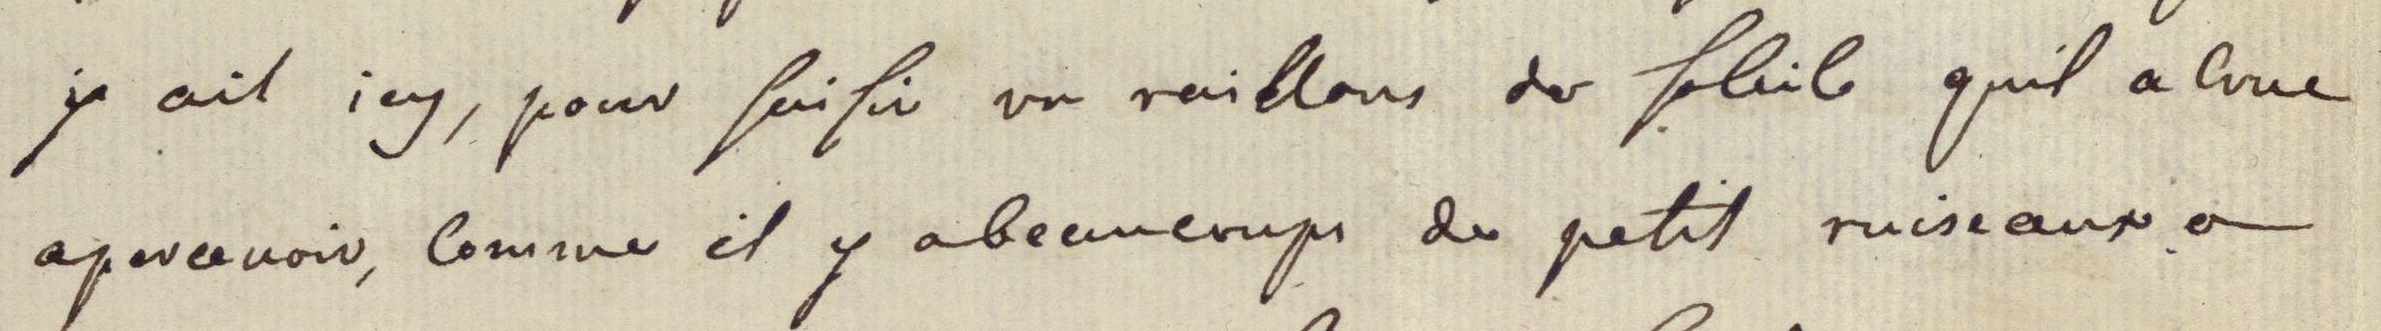 y ait icy, pour saisir un raillons de soleile quil a crue
apercevoir, Comme il y abeaucoups de petit ruiseaux a